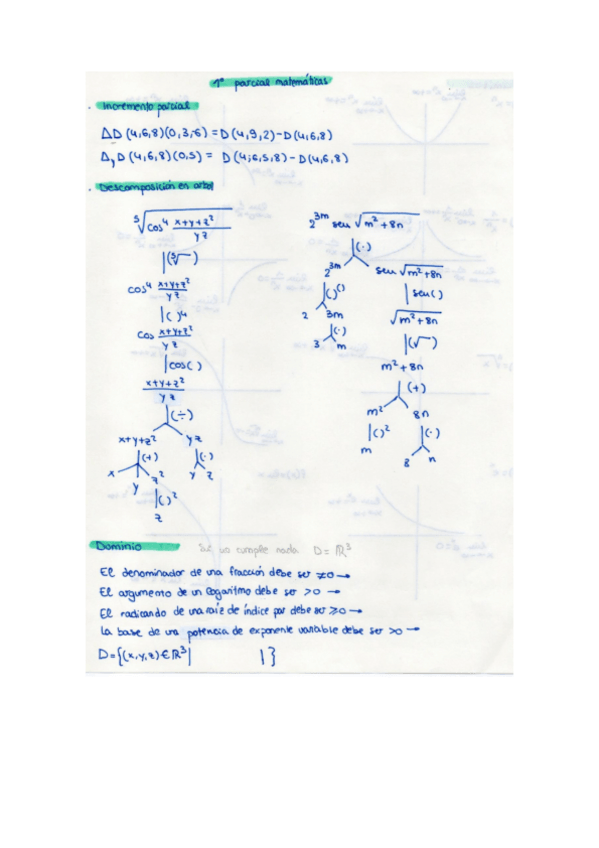 1º parcial matemáticas
· Incremento parcial
ΔD (4,6,8)(0,3,-6) = D(4,9,2)-D(4,6,8)
Δ, D (4,6,8)(0,5) = D(4,6,5,8)-D(4,6,8)
· Descomposición en arbol
⁵√(cos⁴ (x+y+z²)/(yz))
|(⁵√‾)
cos⁴ (x+y+z²)/(yz)
|( )⁴
cos (x+y+z²)/(yz)
|cos( )
(x+y+z²)/(yz)
|(÷)
x+y+z² yz
|(+) |(·)
x y z² y z
|( )²
z
2³ᵐ sen √(m²+8n)
|(·)
2³ᵐ sen √(m²+8n)
|( )⁽⁾ | sen( )
2 3m √(m²+8n)
|(·) |(√‾)
3 m m²+8n
|(+)
m² 8n
|( )² |(·)
m 8 n
Dominio no cumple nada D = ℝ³
El denominador de una fracción debe ser ≠0 →
El argumento de un logaritmo debe ser >0 →
El radicando de una raíz de índice par debe ser ≥0 →
La base de una potencia de exponente variable debe ser >0 →
D={(x,y,z)∈ℝ³| |}